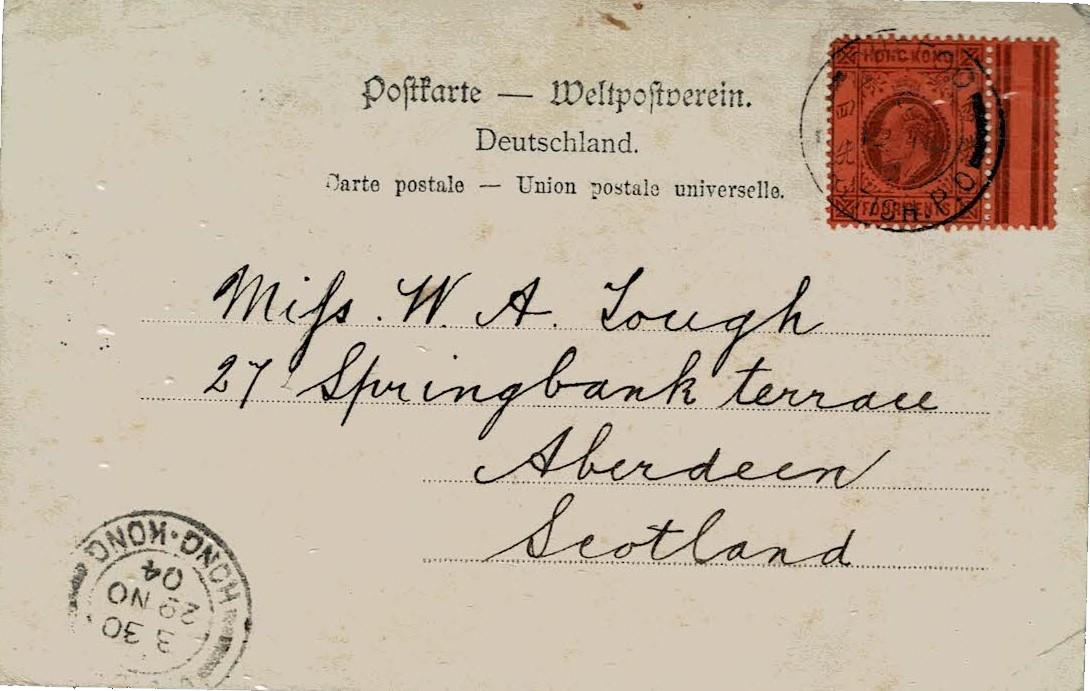 Postkarte — Weltpostverein.
Deutschland.
Carte postale — Union postale universelle.
HONG KONG
FOUR CENTS
Miſs. W. A. Tough
27 Springbank terrace
Aberdeen
Scotland
HONG·KONG
3 30
29 NO
04